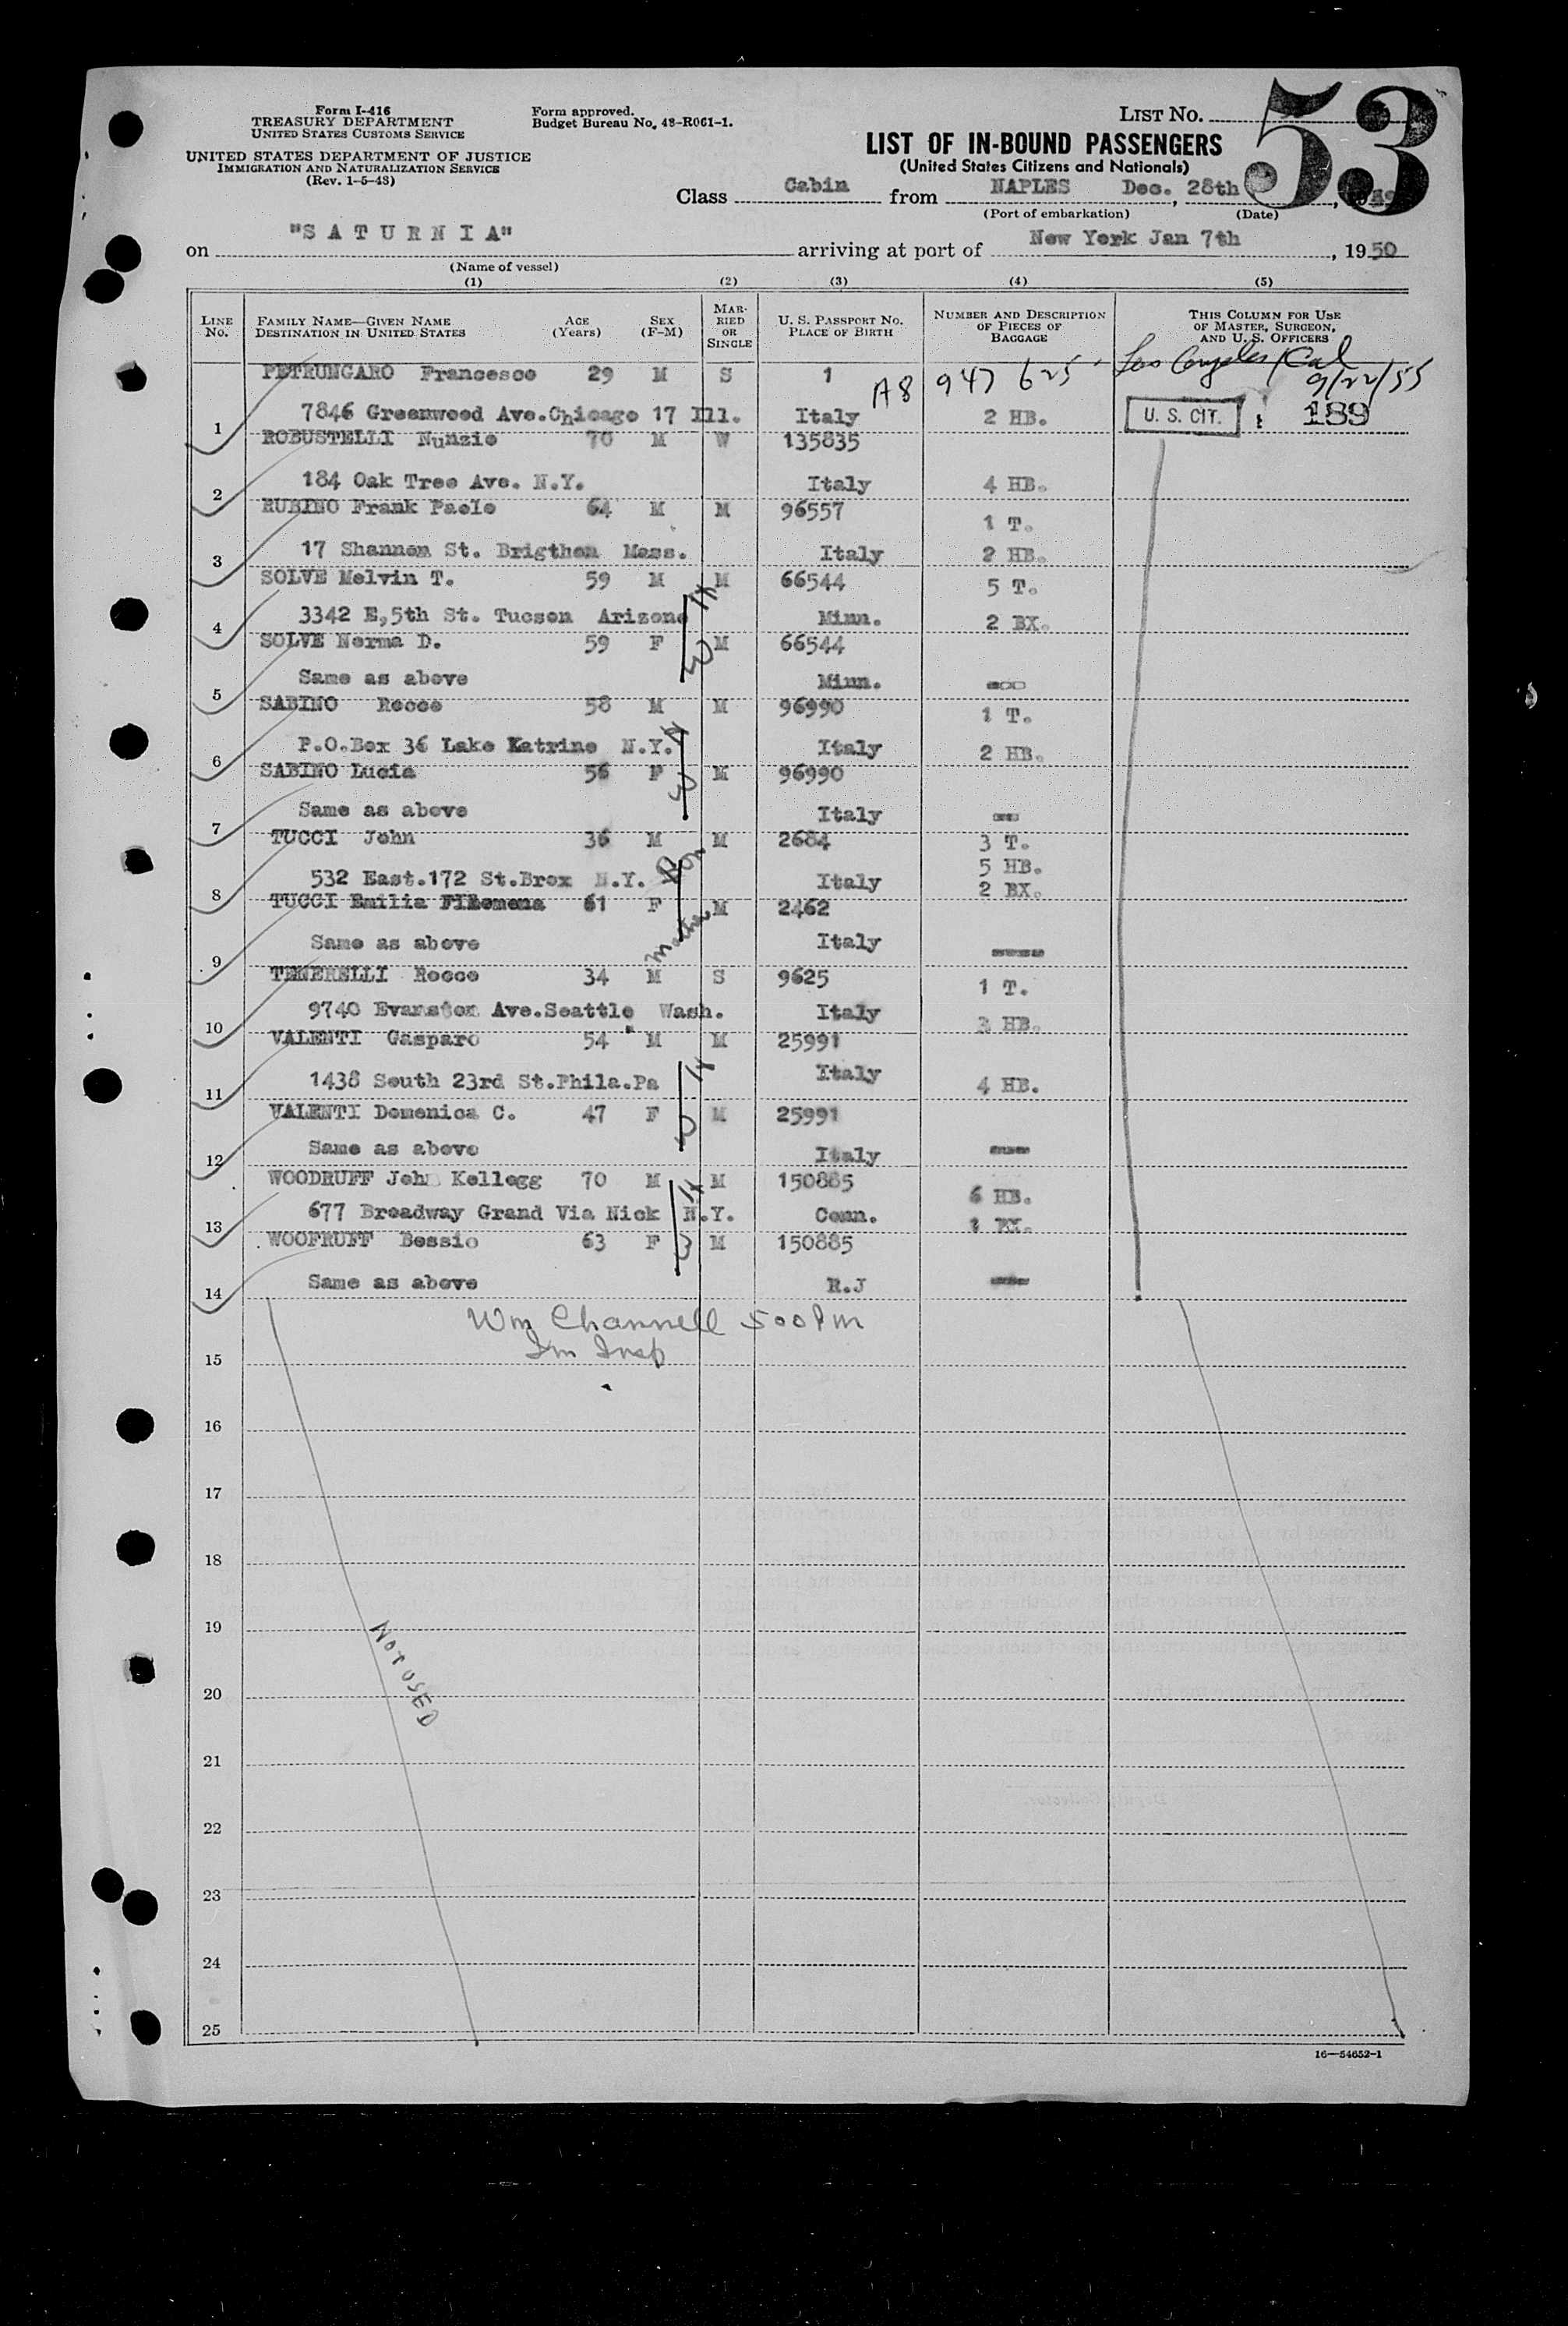 Form I-416
TREASURY DEPARTMENT
UNITED STATES CUSTOMS SERVICE
UNITED STATES DEPARTMENT OF JUSTICE
IMMIGRATION AND NATURALIZATION SERVICE
(Rev. 1-5-48)
Form approved.
Budget Bureau No. 43-R061-1.
LIST NO. 53
LIST OF IN-BOUND PASSENGERS
(United States Citizens and Nationals)
Class Cabin from NAPLES Dec. 28th
(Port of embarkation) (Date)
on "S A T U R N I A" arriving at port of New York Jan 7th, 1950
(Name of vessel)
(1) (2) (3) (4) (5)
LINE NO. FAMILY NAME—GIVEN NAME DESTINATION IN UNITED STATES AGE (Years) SEX (F-M) MARRIED OR SINGLE U. S. PASSPORT NO. PLACE OF BIRTH NUMBER AND DESCRIPTION OF PIECES OF BAGGAGE THIS COLUMN FOR USE OF MASTER, SURGEON, AND U. S. OFFICERS
Los Angeles, Cal
PETRUNGARO Francesco 29 M S 1 A8 947 625 9/22/55
1 7846 Greenwood Ave.Chicago 17 Ill. Italy 2 HB. U. S. CIT. 189
ROBUSTELLI Nunzio 70 M W 135835
2 184 Oak Tree Ave. N.Y. Italy 4 HB.
RUBINO Frank Paolo 64 M M 96557 1 T.
3 17 Shannon St. Brigthon Mass. Italy 2 HB.
SOLVE Melvin T. 59 M M 66544 5 T.
4 3342 E,5th St. Tucson Arizona Minn. 2 BX.
SOLVE Norma D. 59 F M 66544
H W
5 Same as above Minn.
SABINO Rocco 58 M M 96990 1 T.
6 P.O.Box 36 Lake Katrine N.Y. Italy 2 HB.
SABINO Lucia 56 F M 96990
H W
7 Same as above Italy
TUCCI John 36 M M 2684 3 T.
5 HB.
8 532 East.172 St.Brox N.Y. Italy 2 BX.
TUCCI Emilia Filomena 61 F M 2462
Son Mother
9 Same as above Italy
TEMERELLI Rocco 34 M S 9625 1 T.
10 9740 Evanston Ave.Seattle Wash. Italy HB.
VALENTI Gasparo 54 M M 25991
11 1438 South 23rd St.Phila.Pa Italy 4 HB.
VALENTI Domenica C. 47 F M 25991
H W
12 Same as above Italy
WOODRUFF John Kellogg 70 M M 150885 6 HB.
13 677 Broadway Grand Via Nick N.Y. Conn. 1 BX.
WOOFRUFF Bessie 63 F M 150885
H W
14 Same as above R.J
Wm Channell 500 Pm
Im Insp
15
16
17
18
19
NOT USED
20
21
22
23
24
25
16—54652-1